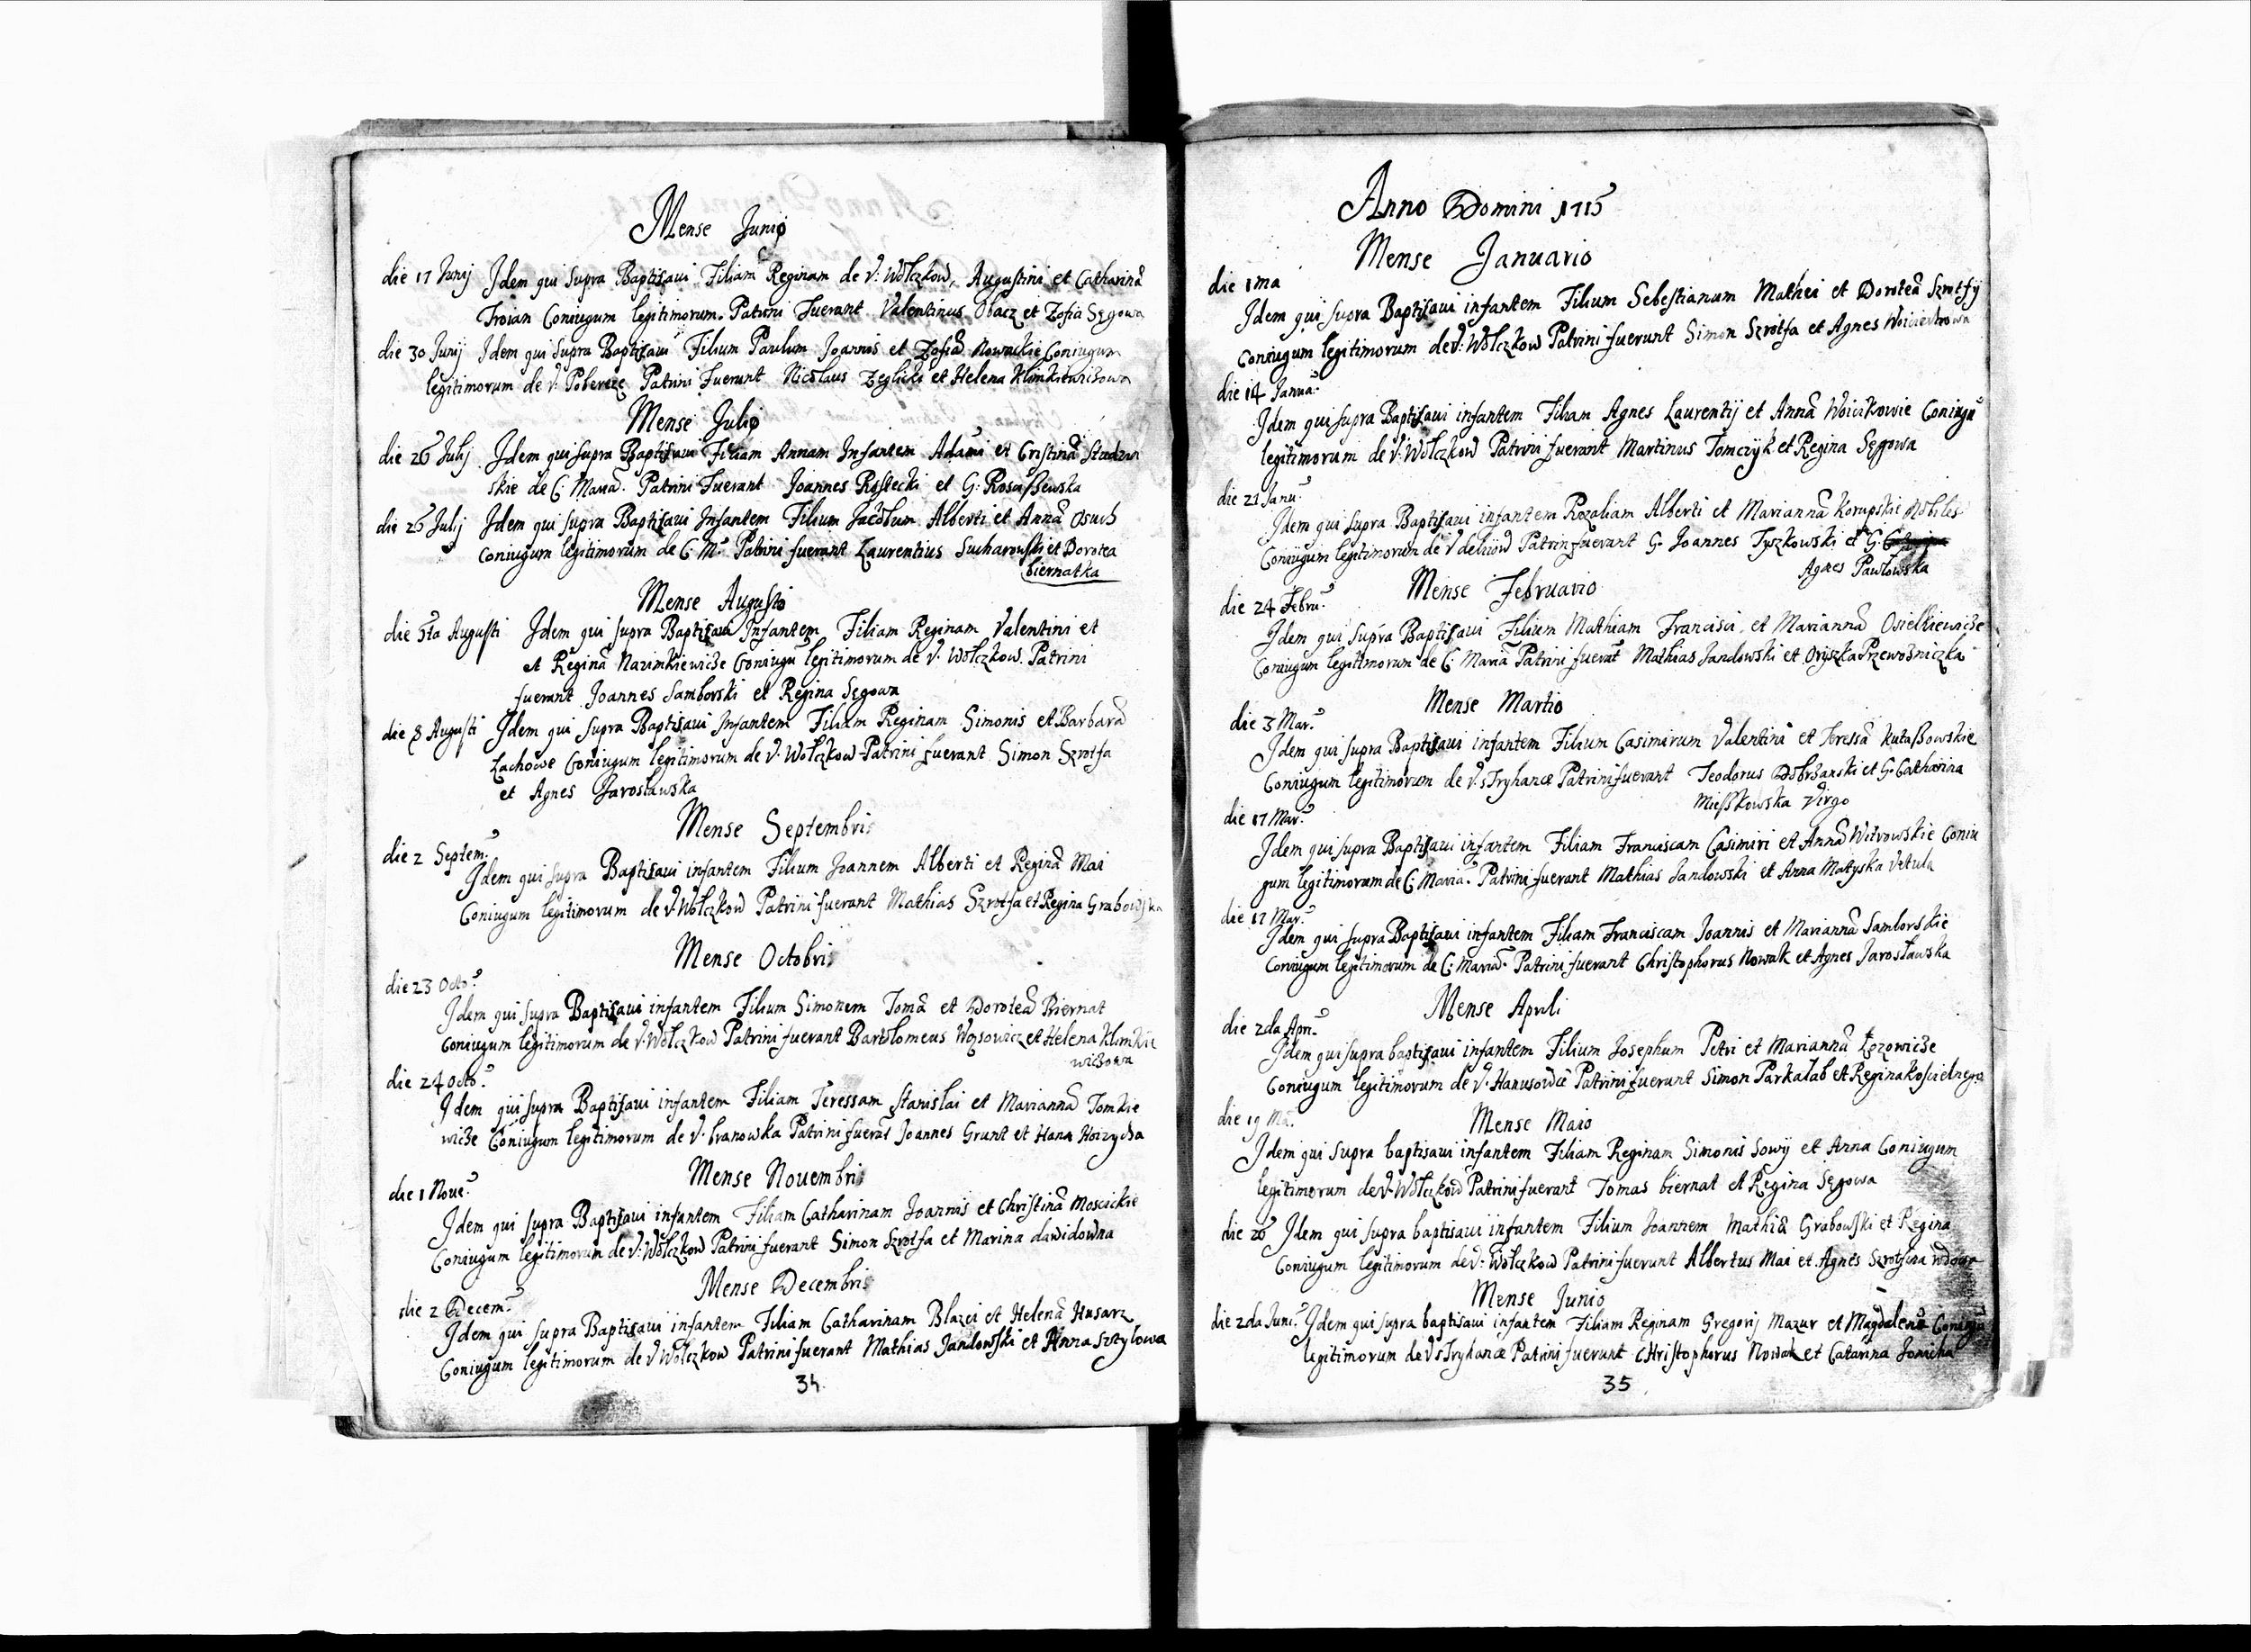 Mense Junio
die 17 Junij Idem qui supra Baptisavi Filiam Reginam de V: Wołczkow, Augustini et Catharinæ
Troian Coniugum legitimorum. Patrini Fuerant Valentinus Obacz et Zofia Sęgowa
die 30 Junij Idem qui supra Baptisavi Filium Paulum Joannis et Zofiæ Nowickie Coniugum
legitimorum de V: Pobereże Patrini Fuerant Nicolaus Zeglicki et Helena Klimkiewiczowa
Mense Julio
die 26 Julij Idem qui supra Baptisavi Filiam Annam Infantem Adami et Cristinæ
skie de C: Mariæ. Patrini Fuerant Joannes Rostecki et G: Rosa
die 26 Julij Idem qui supra Baptisavi Infantem Filium Jacobum Alberti et Annæ Osuch
Coniugum legitimorum de C: M: Patrini fuerant Laurentius Sucharowski et Dorotea
biernatka
Mense Augusto
die 5ta Augusti Idem qui supra Baptisavi Infantem Filiam Reginam Valentini et
et Reginæ Nazimkiewicze Coniugũ legitimorum de V: Wołczkow. Patrini
fuerant Joannes Samborski et Regina Sęgowa
die 8 Augusti Idem qui supra Baptisavi Infantem Filiam Reginam Simonis et Barbaræ
Lachowe Coniugum legitimorum de V: Wołczkow Patrini fuerant Simon Szrotfa
et Agnes Jarosławska
Mense Septembris
die 2 Septem:
Idem qui supra Baptisavi infantem Filium Joannem Alberti et Reginæ Mai
Coniugum legitimorum de V: Wołczkow Patrini fuerant Mathias Szrotfa et Regina Grabowska
Mense Octobris
die 23 Octo:
Idem qui supra Baptisavi infantem Filium Simonem Tomæ et Doroteæ Biernat
Coniugum legitimorum de V: Wołczkow Patrini fuerant Bartolomeus Wąsowicz et Helena Klimkie
wiczowa
die 24 Octo:
Idem qui supra Baptisavi infantem Filiam Teressam Stanislai et Mariannæ Tomkie
wicze Coniugum legitimorum de V: branowska Patrini fuerãt Joannes Grunt et Hana
Mense Nouembris
die 1 Noue:
Idem qui supra Baptisavi infantem Filiam Catharinam Joannis et Christinæ Moscickie
Coniugum legitimorum de V: Wołczkow Patrini fuerant Simon Szrotfa et Marina dawidowna
Mense Decembris
die 2 Decem:
Idem qui supra Baptisavi infantem Filiam Catharinam Blazei et Helenæ Husarz
Coniugum legitimorum de V Wołczkow Patrini fuerant Mathias Jandowski et Anna Sztylowa
34
Anno Domini 1715
Mense Januario
die 1ma
Idem qui supra Baptisavi infantem Filium Sebestianum Mathei et Doroteæ Szrotfy
Coniugum legitimorum de V: Wołczkow Patrini fuerunt Simon Szrotfa et Agnes
die 14 Janua:
Idem qui supra Baptisavi infantem Filiam Agnes Laurentij et Annæ Woicikowie Coniugũ
legitimorum de V: Wołczkow Patrini fuerant Martinus Tomczyk et Regina Sęgowa
die 21 Janu:
Idem qui supra Baptisavi infantem Rozaliam Alberti et Mariannæ Korupskie Nobiles
Coniugum legitimorum de V Patrin fuerant G: Joannes Tyszkowski et G:
Agnes Pawłowska
Mense Februario
die 24 Febru:
Idem qui supra Baptisavi Filium Mathiam Francisci et Mariannæ Osielkiewicze
Coniugum legitimorum de C: Mariæ Patrini fuerãt Mathias Jandowski et Oryszka Przewozniczka
Mense Martio
die 3 Mar:
Idem qui supra Baptisavi infantem Filium Casimirum Valentini et Teressæ Kutaßowskie
Coniugum legitimorum de V: sTryhancæ Patrini fuerant Teodorus Dobrzanski et G: Catharina
Mießkowska Virgo
die 17 Mar:
Idem qui supra Baptisavi infantem Filiam Franciscam Casimiri et Annæ Witrowskie Coniu
gum legitimorum de C: Mariæ. Patrini fuerant Mathias Jandowski et Anna Matyska Vetula
die 17 Mar:
Idem qui supra Baptisavi infantem Filiam Franciscam Joannis et Mariannæ Samborskie
Coniugum legitimorum de C: Mariæ. Patrini fuerant Christophorus Nowak et Agnes Jarosławska
Mense Aprili
die 2da Apri:
Idem qui supra baptisavi infantem Filium Josephum Petri et Mariannæ Łozowicze
Coniugum legitimorum de V: Hanusowce Patrini fuerunt Simon Parkalab et Regina Koscielnego
Mense Maio
die 19 Ma:
Idem qui supra baptisavi infantem Filiam Reginam Simonis Sowy et Anna Coniugum
legitimorum de V: Wołczkow Patrini fuerant Tomas biernat et Regina Sęgowa
die 26 Idem qui supra baptisavi infantem Filium Joannem Mathiæ Grabowski et Regina
Coniugum legitimorum de V: Wołczkow Patrini fuerunt Albertus Mai et Agnes Szrotfina wdowa
Mense Junio
die 2da Juni: Idem qui supra baptisavi infantem Filiam Reginam Gregorij Mazur et Magdalenæ Coniugũ
legitimorum de V sTryhancæ Patrini fuerunt Christophorus Nowak et Catarina
35